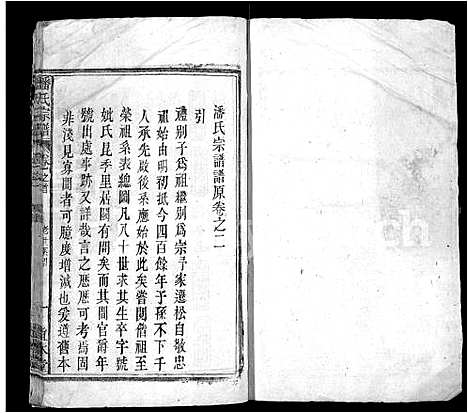 潘氏宗譜譜原卷之二
引
禮別子為祖繼別為宗予家遷松自敬忠
祖始由明初抵今四百餘年于後之不下千
人承先啟後系應始於此矣嘗閱僃祖至
榮祖系表總圖凡八十世求其生卒字號
妣氏昆季里居圖有間矣而其間官爵年
號出處事跡又詳哉言之歷歷可考焉固
非淺見寡聞者可臆度增減也爰遵舊本
潘氏宗譜
卷之首